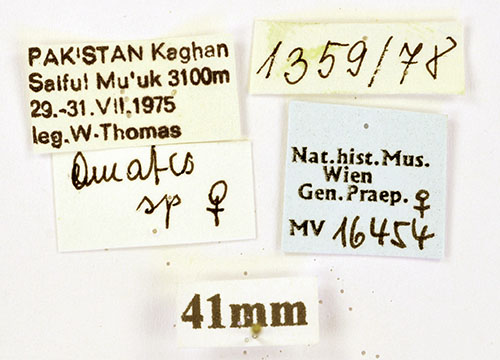 PAKISTAN Kaghan
Saiful Mu'uk 3100m
29.-31.VII.1975
leg.W.Thomas
1359/78
sp ♀
Nat.hist.Mus.
Wien
Gen.Praep. ♀
MV 16454
41mm